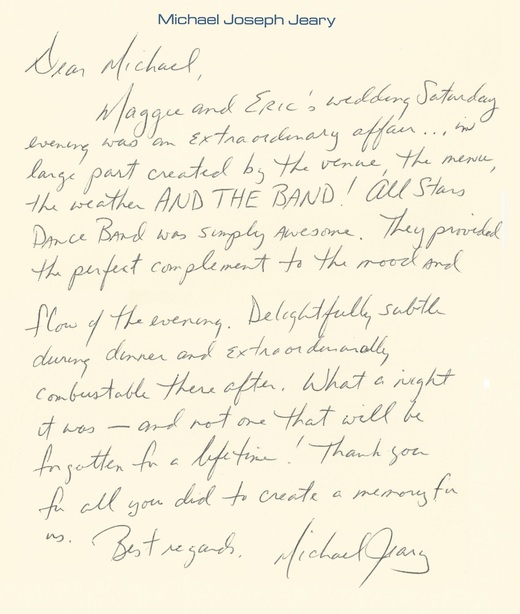 Michael Joseph Jeary
Dear Michael,
Maggie and Eric's wedding Saturday
evening was an extraordinary affair... in
large part created by the venue, the menu,
the weather AND THE BAND! All Stars
Dance Band was simply awesome. They provided
the perfect complement to the mood and
flow of the evening. Delightfully subtle
during dinner and extraordinarily
combustable there after. What a night
it was — and not one that will be
forgotten for a lifetime! Thank you
for all you did to create a memory for
us. Best regards. Michael Jeary